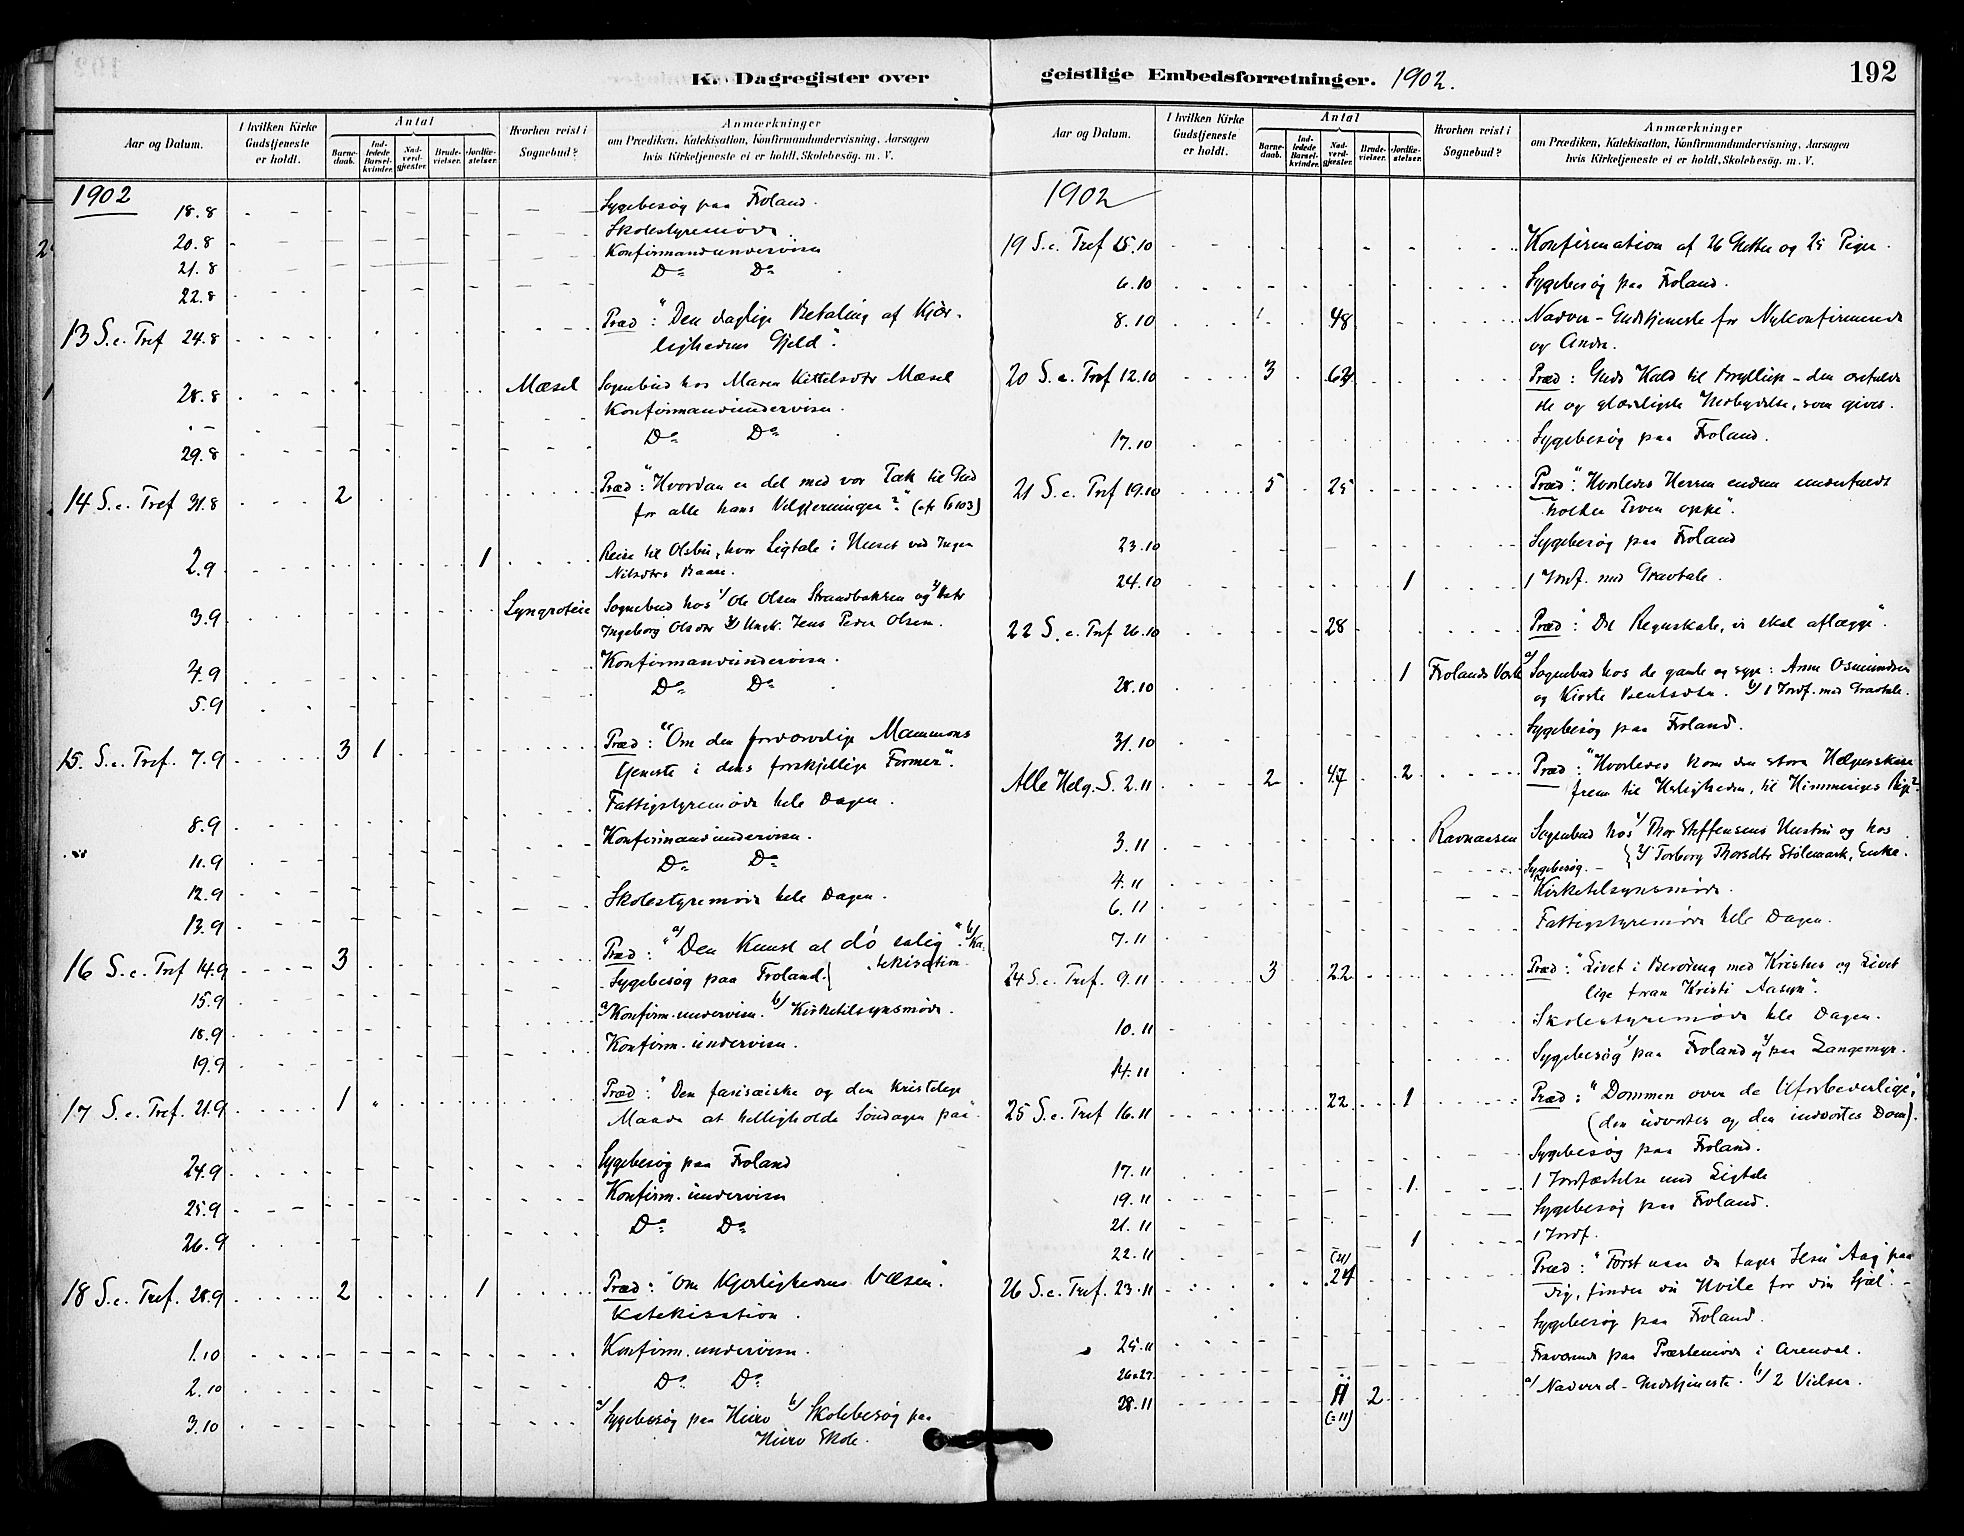 K. Dagregister over
Aar og Datum.
I hvilken Kirke Gudstjeneste er holdt.
Antal
Barnedaab.
Indledede Barselkvinder.
Nadverdgjester.
Brudevielser.
Jordfæstelser.
Hvorhen reist i Sognebud?
Anmærkninger
om Prædiken, Katekisation, Konfirmandundervisning, Aarsagen
hvis Kirketjeneste ei er holdt, Skolebesøg. m. V.
1902
18.8 Sygebesøg paa Froland.
20.8 Skolestyremøde.
21.8 Konfirmandundervisn
22.8 Do Do
13 S. e. Tref 24.8 Præd: "Den daglige Betaling af Kjær-
lighedens Gjeld".
28.8 Mæsel Sognebud hos Maren Kittelsdtr Mæsel
Konfirmandundervisn.
29.8 Do Do
14 S. e. Tref 31.8 2 Præd: "Hvordan er det med vor Tak til Gud
for alle hans Velgjerninger?" (cfr 103)
2.9 1 Reise til Olsbu, hvor Ligtale i Huset ved Ingen
Nilsdtrs Baare.
3.9 Lyngroteie Sognebud hos 1/ Ole Olsen Strandbakken og 2/ Datr
Ingeborg Olsdtr 3/ Ungk. Jens Peder Olsen.
4.9 Konfirmandundervisn.
5.9 Do Do
15. S. e. Tref. 7.9 3 1 Præd: "Om den fordærvelige Mammons
tjeneste i dens forskjellige Former".
8.9 Fattigstyremøde hele Dagen.
11.9 Konfirmandundervisn.
12.9 Do Do
13.9 Skolestyremøde hele Dagen.
16 S. e. Tref 14.9 3 Præd: a/ "Den Kunst at dø salig". b/ Ka-
tekisation.
15.9 Sygebesøg paa Froland.
18.9 a/ Konfirm. undervisn. b/ Kirketilsynsmøde.
19.9 Konfirm. undervisn.
17 S. e. Tref. 21.9 1 Præd: "Den farisæiske og den kristelige
Maade at helligholde Søndagen paa".
24.9 Sygebesøg paa Froland
25.9 Konfirm. undervisn
26.9 Do Do
18 S. e. Tref. 28.9 2 1 Præd: "Om Kjærlighedens Væsen".
Katekisation.
1.10 Konfirm. undervisn.
2.10 Do Do
3.10 a/ Sygebesøg paa Hiuro b/ Skolebesøg paa
Hiuro Skole.
geistlige Embedsforretninger. 1902.
192
Aar og Datum.
I hvilken Kirke Gudstjeneste er holdt.
Antal
Barnedaab.
Indledede Barselkvinder.
Nadverdgjester.
Brudevielser.
Jordfæstelser.
Hvorhen reist i Sognebud?
Anmærkninger
om Prædiken, Katekisation, Konfirmandundervisning, Aarsagen
hvis Kirketjeneste ei er holdt, Skolebesøg. m. V.
1902
19 S. e. Tref 5.10 Konfirmation af 26 Gutter og 25 Piger.
6.10 Sygebesøg paa Froland.
8.10 1 48 Nadver-Gudstjeneste for Nykonfirmerede
og Andre.
20 S. e. Tref 12.10 3 62 Præd: Guds Kald til Bryllup - den ærefulde
ste og glædeligste Indbydelse, som gives.
17.10 Sygebesøg paa Froland.
21 S. e. Tref 19.10 5 25 Præd: "Hvorledes Herren endnu underfuldt
holder Troen oppe".
23.10 Sygebesøg paa Froland
24.10 1 1 Jordf. med Gravtale.
22 S. e. Tref 26.10 28 Præd: "Det Regnskab, vi skal aflægge".
28.10 1 Frolands Værk a/ Sognebud hos de gamle og syge: Anne Osmundsen
og Kirste Bentsdtr. b/ 1 Jordf. med Gravtale.
31.10 Sygebesøg paa Froland.
Alle Helg. S. 2.11 2 47 2 Præd: "Hvorledes kom den store Helgenskare
frem til Herligheden, til Himmeriges Rige?"
3.11 Ravnaasen Sognebud hos 1/ Thor Steffensens Hustru og hos
2/ Torborg Thorsdtr Stølemark, Enke.
4.11 Sygebesøg.
6.11 Kirketilsynsmøde.
7.11 Fattigstyremøde hele Dagen.
24 S. e. Tref. 9.11 3 22 Præd: "Livet i Berøring med Kristus og Livet
lige foran Kristi Aasyn".
10.11 Skolestyremøde hele Dagen.
14.11 Sygebesøg 1/ paa Froland og 2/ paa Langemyr.
25 S. e. Tref 16.11 22 1 Præd: "Dommen over de Uforbederlige,"
(den udvortes og den indvortes Dom).
17.11 Sygebesøg paa Froland.
19.11 1 1 Jordfæstelse med Ligtale
21.11 Sygebesøg paa Froland.
22.11 1 1 Jordf.
26 S. e. Tref. 23.11 24 Præd: "Først naar du tager Jesu Aag paa
dig, finder du Hvile for din Sjæl".
25.11 Sygebesøg paa Froland.
26 & 27 Fraværende paa Præstemøde i Arendal.
28.11 11 (=11) 2 a/ Nadverd-Gudstjeneste. b/ 2 Vielser.